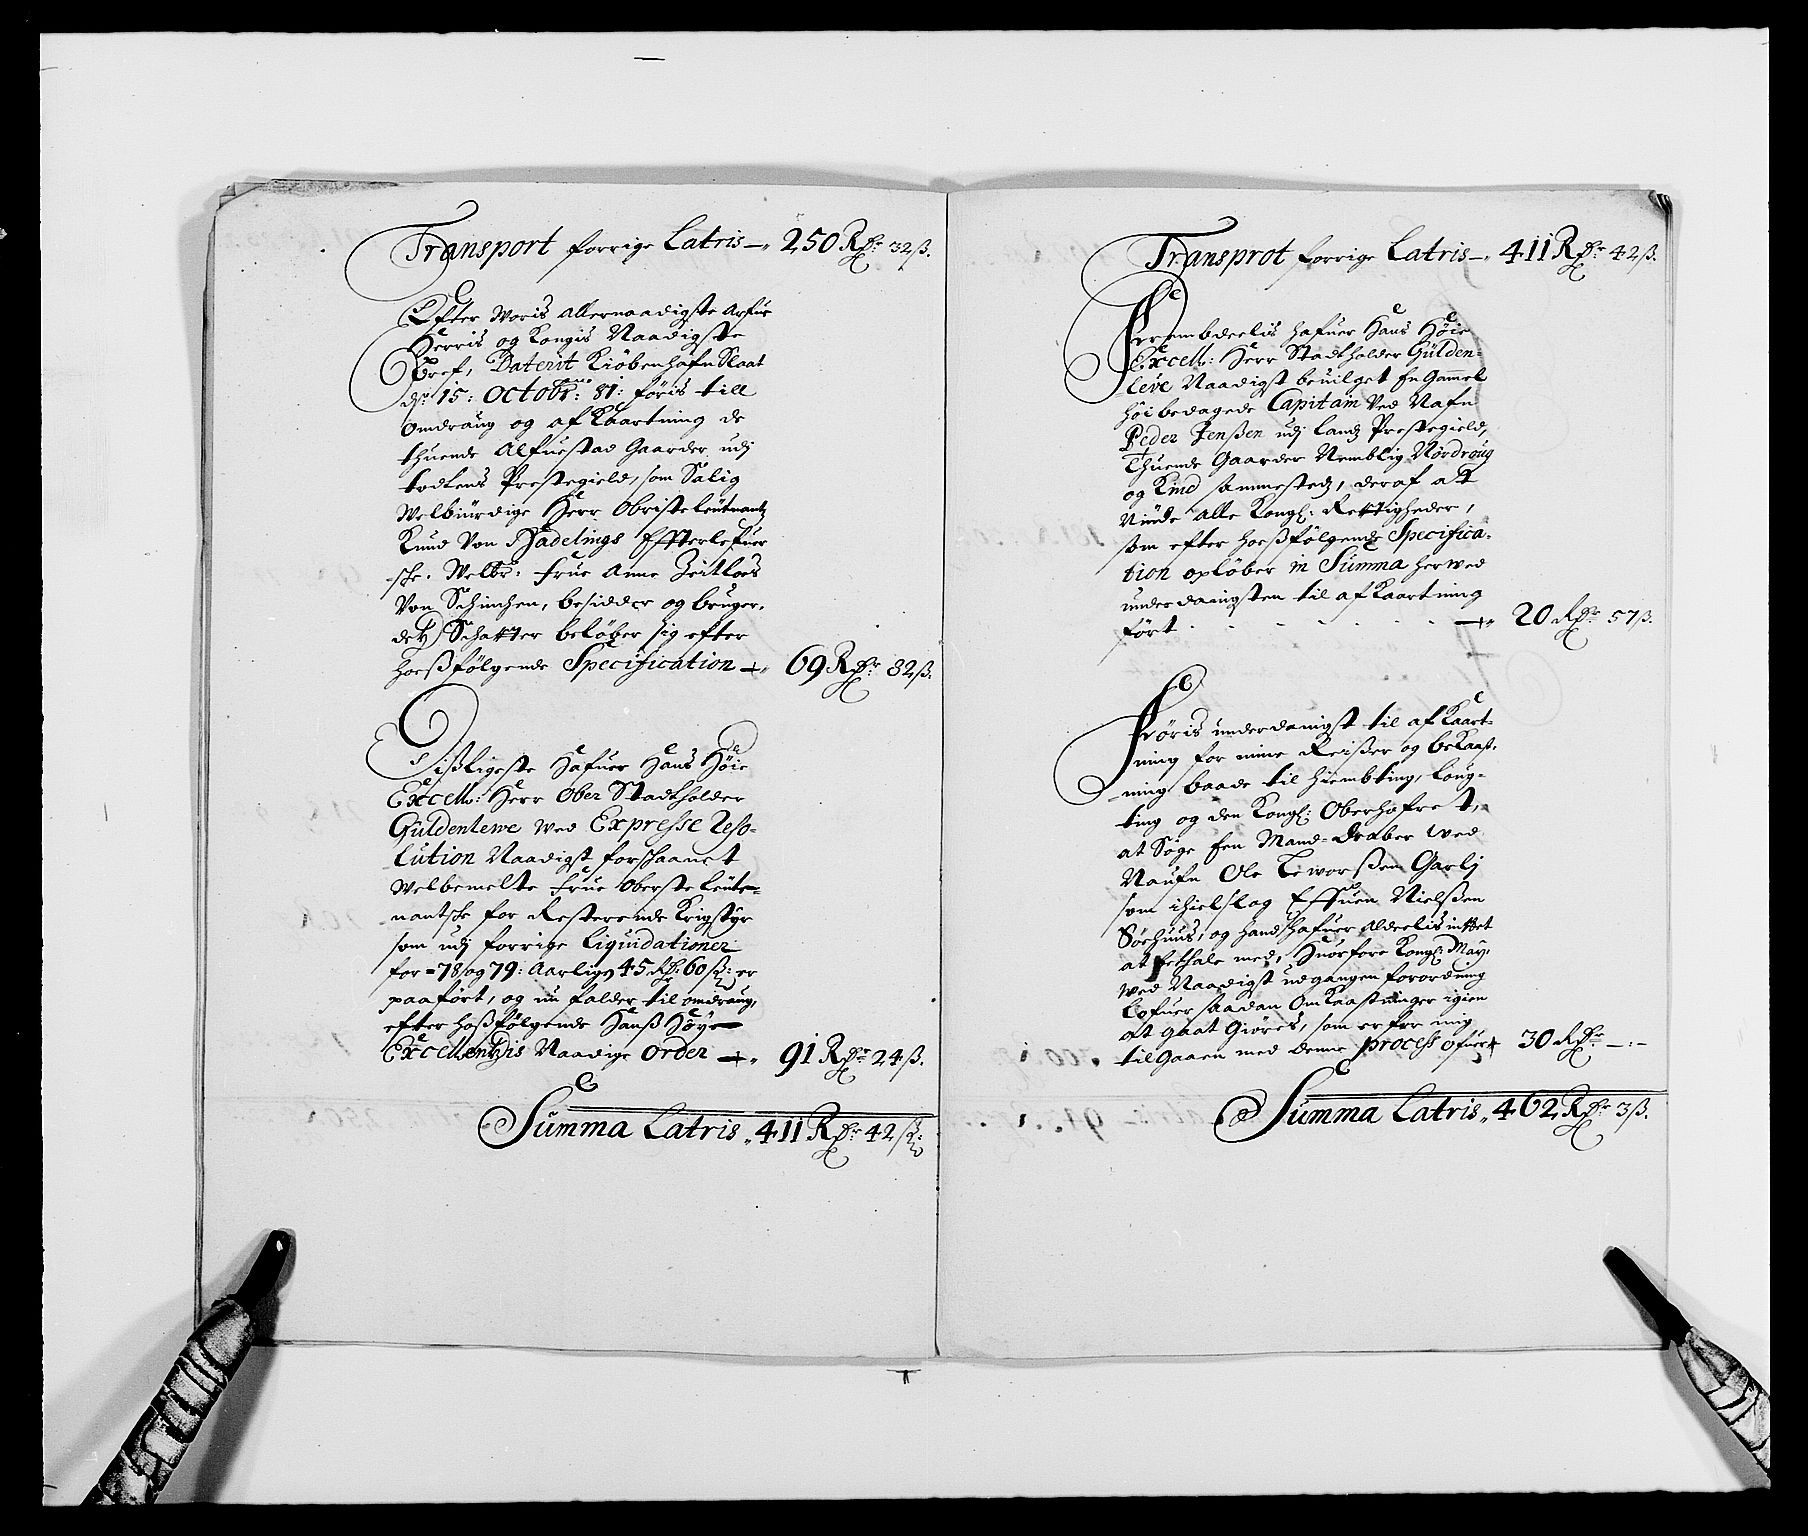 Transport forrige Latris — 250 Rdr 32 ß.
Efter Woris Allernaadigste Arfue
Herris og Kongis Naadigste
Bref, Daterit Kiöbenhafn Slaat
dn: 15: Octobr: 81: föris till
omdraug og af Kaartning de
thuende Alfuestad Gaarder udj
todtens Prestegield, som Salig
Welbiurdige Herr Obriste Leutnantz
Knud Von Hadelings Effterlefuer
sche. Welbr: frue Anne
Von Schinchen, besidder og bruger,
detz Schatter belöber sig efter
hoesfölgende Specification — 69 Rdr 82 ß.
Dissligeste Hafuer Hans Höie
Excell: Herr Ober Stadtholder
Güldenlewe wed Expresse Reso-
lution Naadigst forschaanet
Welbemelte frue Oberste Leute-
nantsche for Resterende Krigstyr
som udj forrige Liquidationer
for = 78 og 79: Aarligen 45 Rdr: 60 ß: er
paafört, og nu falder til omdraug,
efter hosfölgende Hanss Höye
Excellentzis Naadige order — 91 Rdr 24 ß.
Summa Latris „ 411 Rdr 42 ß:
Transprot forrige Latris — 411 Rdr 42 ß.
Frembdeelis hafuer Hans Höie
Excell: Herr Stadtholder Gülden-
leve Naadigst beuilget En Gammel
höibedagede Capitain Ved Nafn
Peder Jenssen udj Landz Prestegield,
Thuende Gaarder Nemblig Nordroug
og Kind sammestedz, deraf att
Niude Alle Kongl: Rettigheder,
som efter hoesfölgende Specifica-
tion oplöber in Summa herwed
underdanigsten til afKaartning
fört — 20 Rdr 57 ß.
Föris underdanigst til af Kaart-
ning for mine Reisser og beKaast-
ning baade til hiembting, Laug-
ting og den Kongl: Oberhofret,
at Söge Een Mand-Draber wed
Naufn Ole Leworssen Garlj
som ihielslog Effuen Nielssen
Sörhuus, og hand hafuer alderlis inttet
at betale med, Huorfore Kongl: May:
wed Naadigst udgangen forordning
Lofuer saadan Omkaastninger igien
at gaat Giöres, som er for mig
tilgaaen med denne process ofuer 30 Rdr — . —
Summa Latris „ 462 Rdr 3 ß.